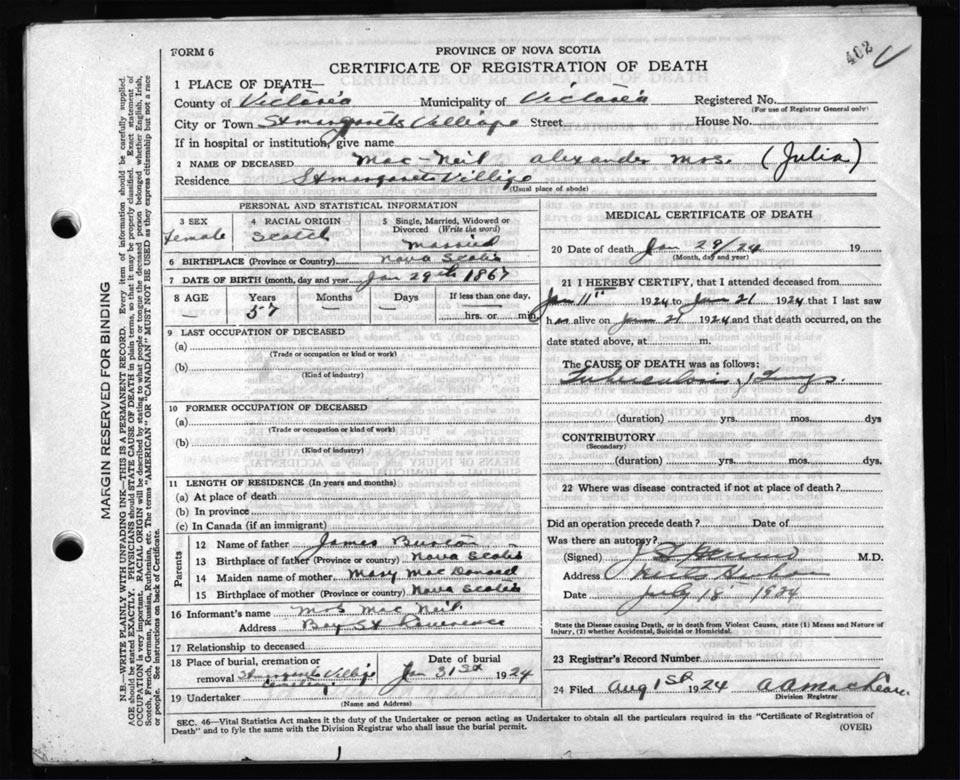 402
FORM 6
PROVINCE OF NOVA SCOTIA
CERTIFICATE OF REGISTRATION OF DEATH
1 PLACE OF DEATH—
County of Victoria Municipality of Victoria Registered No.
(For use of Registrar General only)
City or Town St margarets Villiage Street House No.
If in hospital or institution, give name
2 NAME OF DECEASED Mac-Neil alexander Mrs. (Julia)
Residence St margarets Villige
(Usual place of abode)
PERSONAL AND STATISTICAL INFORMATION
3 SEX 4 RACIAL ORIGIN 5 Single, Married, Widowed or Divorced (Write the word)
female Scotch Married
6 BIRTHPLACE (Province or Country) Nova Scotia
7 DATE OF BIRTH (month, day and year) Jan 29th 1867
8 AGE Years Months Days If less than one day,
— 57 — — hrs. or min.
9 LAST OCCUPATION OF DECEASED
(a)
(Trade or occupation or kind or work)
(b)
(Kind of industry)
10 FORMER OCCUPATION OF DECEASED
(a)
(Trade or occupation or kind of work)
(b)
(Kind of industry)
11 LENGTH OF RESIDENCE (In years and months)
(a) At place of death
(b) In province
(c) In Canada (if an immigrant)
Parents
12 Name of father James Burton
13 Birthplace of father (Province or country) Nova Scotia
14 Maiden name of mother Mary Mac Donald
15 Birthplace of mother (Province or country) Nova Scotia
16 Informant's name Mrs Mac Neil
Address Bay St Lawrence
17 Relationship to deceased
18 Place of burial, cremation or removal St margarets Villige Date of burial Jan 31st 1924
19 Undertaker
(Name and Address)
MEDICAL CERTIFICATE OF DEATH
20 Date of death Jan 29/24 19
(Month, day and year)
21 I HEREBY CERTIFY, that I attended deceased from
Jan 11th 1924 to Jan 21 1924 that I last saw
h er alive on Jan 21 1924 and that death occurred, on the
date stated above, at m.
The CAUSE OF DEATH was as follows:
Tuberculosis of Lungs.
(duration) yrs. mos. dys
CONTRIBUTORY
(Secondary)
(duration) yrs. mos. dys.
22 Where was disease contracted if not at place of death?
Did an operation precede death? Date of
Was there an autopsy?
(Signed) M.D.
Address Neils Harbor
Date July 18 1924
State the Disease causing Death, or in death from Violent Causes, state (1) Means and Nature of Injury, (2) whether Accidental, Suicidal or Homicidal.
23 Registrar's Record Number
24 Filed Aug 1st 1924 A A MacLean
Division Registrar
SEC. 46—Vital Statistics Act makes it the duty of the Undertaker or person acting as Undertaker to obtain all the particulars required in the "Certificate of Registration of
Death" and to fyle the same with the Division Registrar who shall issue the burial permit. (OVER)
MARGIN RESERVED FOR BINDING
N.B.—WRITE PLAINLY WITH UNFADING INK—THIS IS A PERMANENT RECORD. Every item of information should be carefully supplied.
AGE should be stated EXACTLY. PHYSICIANS should STATE CAUSE OF DEATH in plain terms, so that it may be properly classified. Exact statement of
OCCUPATION is very important. RACIAL ORIGIN will be described by stating to what people or tongue the deceased person belonged whether English, Irish,
Scotch, French, German, Russian, Ruthenian, etc. The terms "AMERICAN" OR "CANADIAN" MUST NOT BE USED as they express citizenship but not a race
or people. See instructions on back of Certificate.